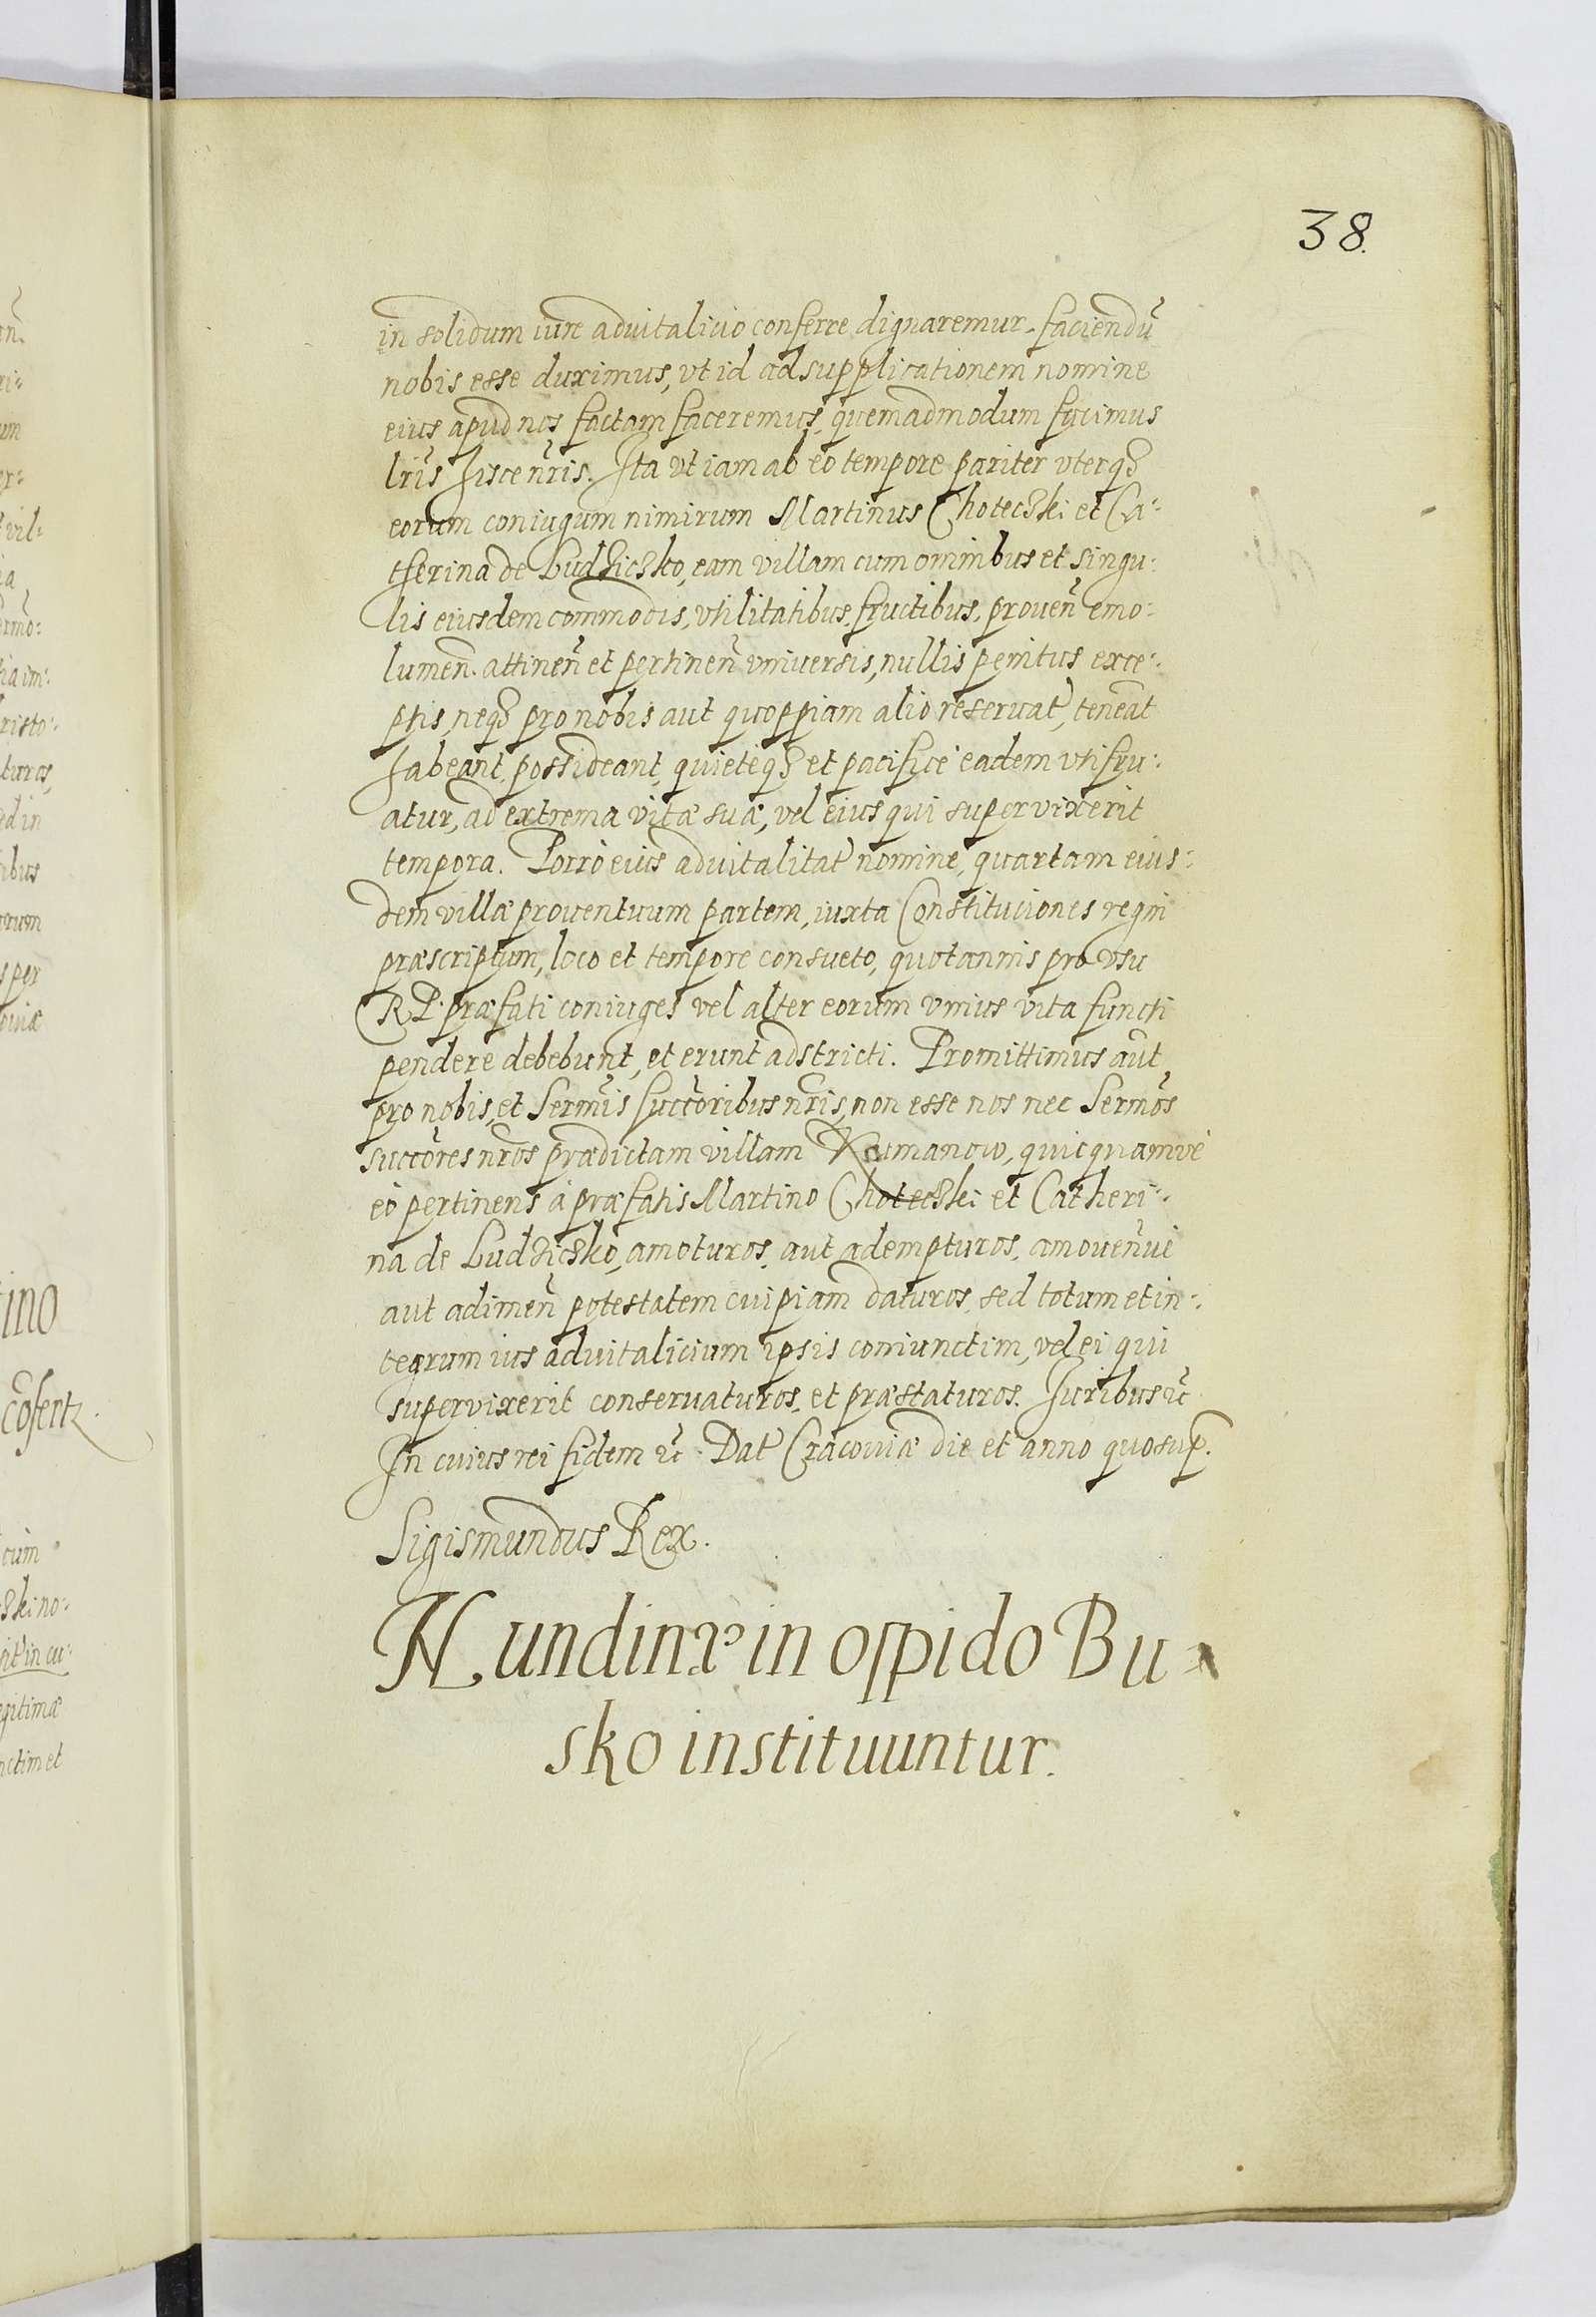 38.
in solidum iure aduitalicio conferre dignaremur. faciendũ
nobis esse duximus, vt id ad supplicationem nomine
eius apud nos factam faceremus, quemadmodum facimus
lris hisce nris. Ita vt iam ab eo tempore pariter vterq3
eorum coniugum nimirum Martinus Choteczki et Ca-:
therina de Budziczko, eam villam cum omnibus et singu:
lis eiusdem commodis, vtilitatibus, fructibus, prouen̄ emo:
lumen̄. attinen̄ et pertinen̄ vniuersis, nullis penitus exce-:
ptis, neq3 pro nobis aut quoppiam alio reseruat, teneāt
habeant, possideant, quieteq3 et pacifice eadem vtifru-:
atur, ad extrema vitæ suæ, vel eius qui supervixerit
tempora. Porrò eius aduitalitat nomine, quartam eius-:
dem villæ prouentuum partem, iuxta Constituciones regni
præscriptum, loco et tempore consueto, quotannis pro vsu
RP. præfati coniuges vel alter eorum vnius vita functi
pendere debebunt, et erunt adstricti. Promittimus aut
pro nobis, et Sermis succoribus nris, non esse nos nec Sermos
succores nros prædictam villam Rumanow, quicquamve
eò pertinens à præfatis Martino Choteczki et Catheri-:
na de Budziczko, amoturos, aut adempturos, amouen̄ve
aut adimen̄ potestatem cuipiam daturos, sed totum et in-:
tegrum ius aduitalicium ipsis coniunctim, vel ei qui
supervixerit conseruaturos, et præstaturos. Iuribus &c
In cuius rei fidem &c. Dat Cracouiæ die et anno quo sup.
Sigismundus Rex.
Nundinæ in oppido Bu-
sko instituuntur.